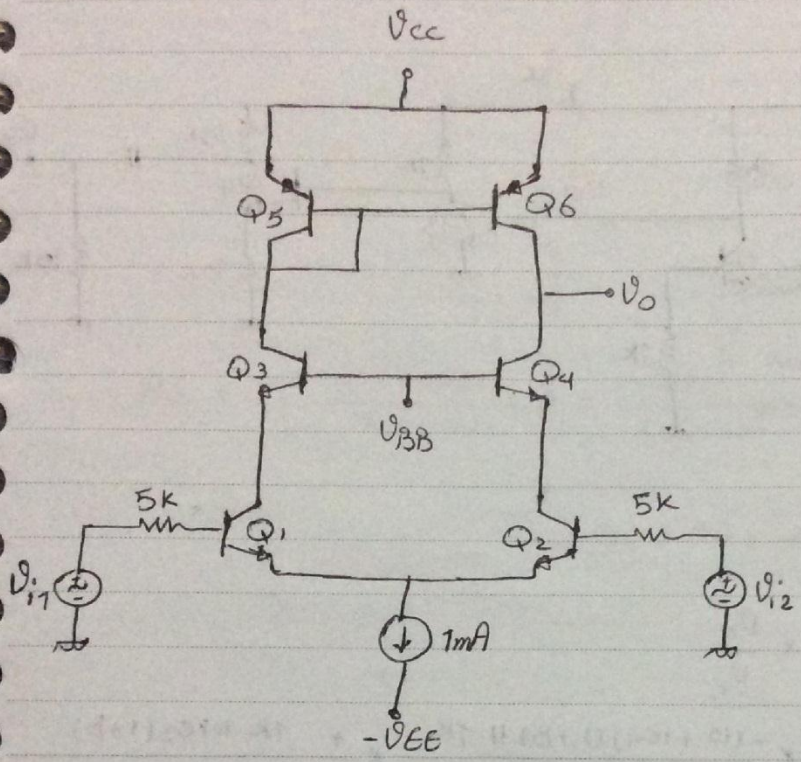 Vcc
Q5
Q6
Vo
Q3
Q4
VBB
5K
5K
Q1
Q2
Vi1
Vi2
1mA
-VEE